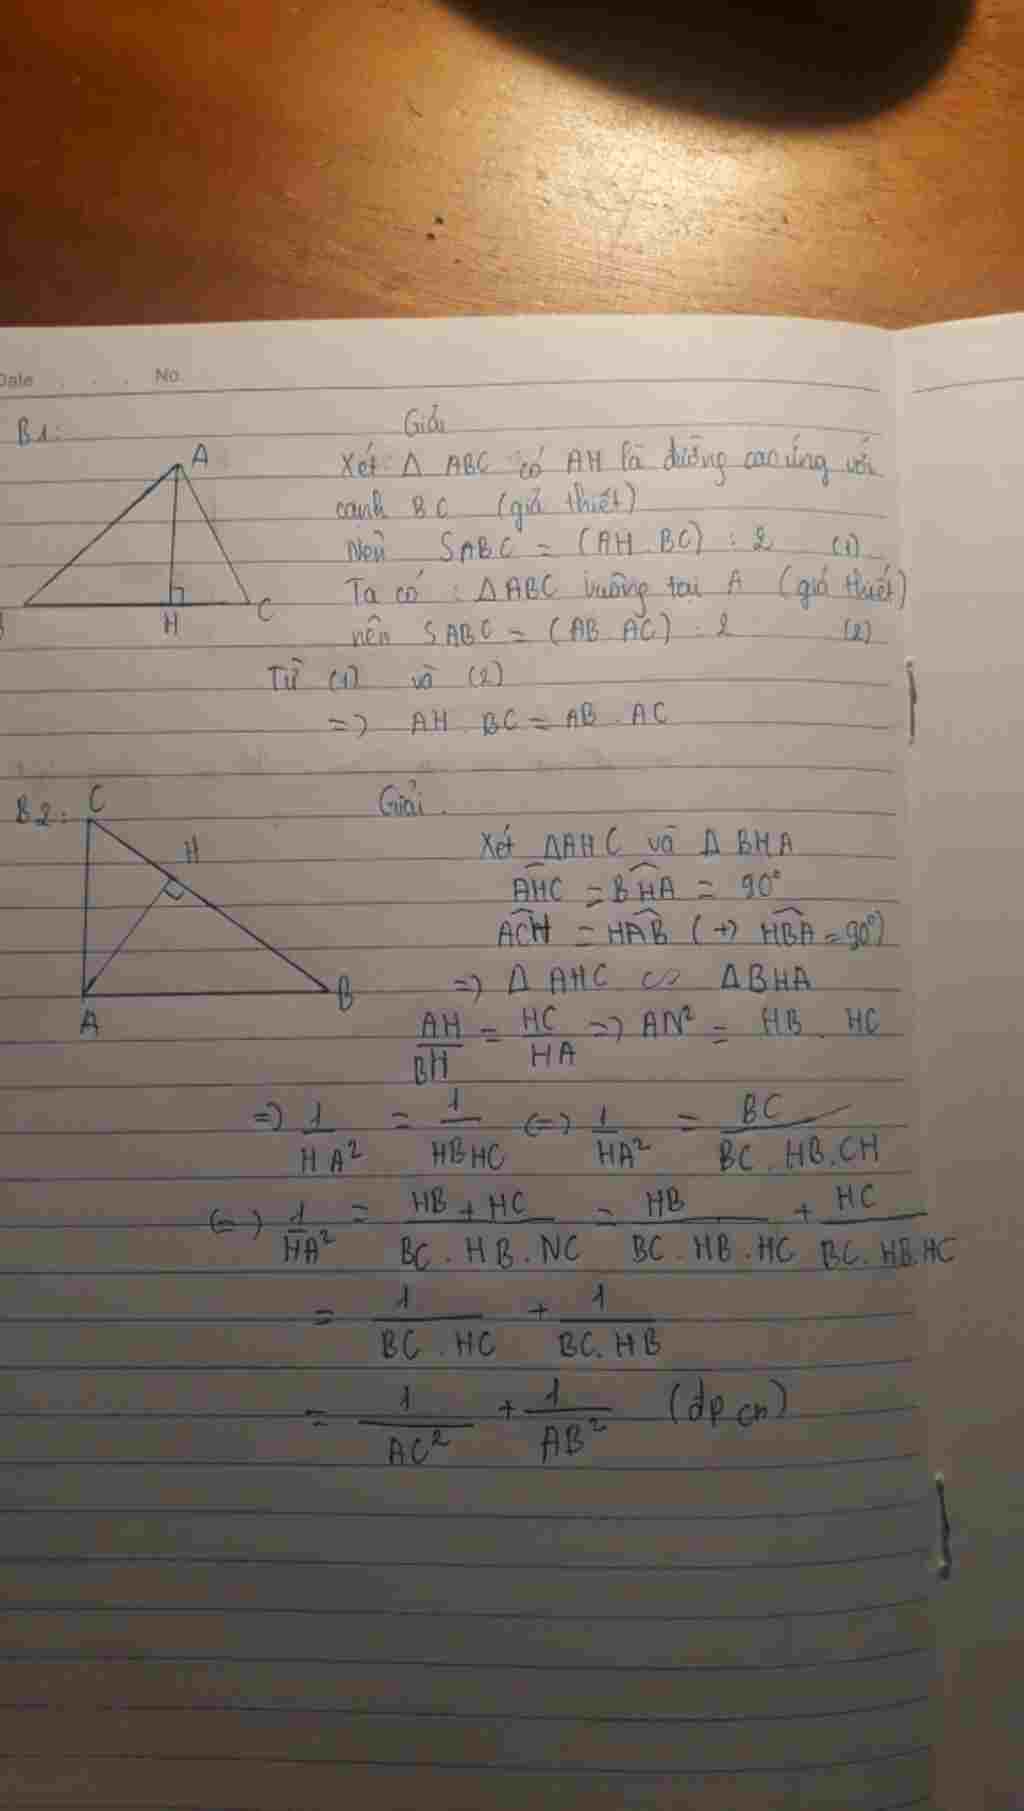 Date . . . No.
B1:
Giải
A
B
H
C
Xét Δ ABC có AH là đường cao ứng với
cạnh BC (giả thiết)
Nên SABC = (AH . BC) : 2 (1)
Ta có : ΔABC vuông tại A (giả thiết)
nên SABC = (AB . AC) : 2 (2)
Từ (1) và (2)
=> AH . BC = AB . AC
B2:
Giải .
C
H
A
B
Xét ΔAHC và Δ BHA
\widehat{AHC} = \widehat{BHA} = 90°
\widehat{ACH} = \widehat{HAB} (+) \widehat{HBA} = 90°)
=> Δ AHC ∽ ΔBHA
AH/BH = HC/HA => AN² = HB . HC
=> 1/HA² = 1/HB HC <=> 1/HA² = BC/BC . HB . CH
<=> 1/HA² = HB + HC/BC . HB . NC = HB/BC . HB . HC + HC/BC . HB . HC
= 1/BC . HC + 1/BC . HB
= 1/AC² + 1/AB² (đpcm)